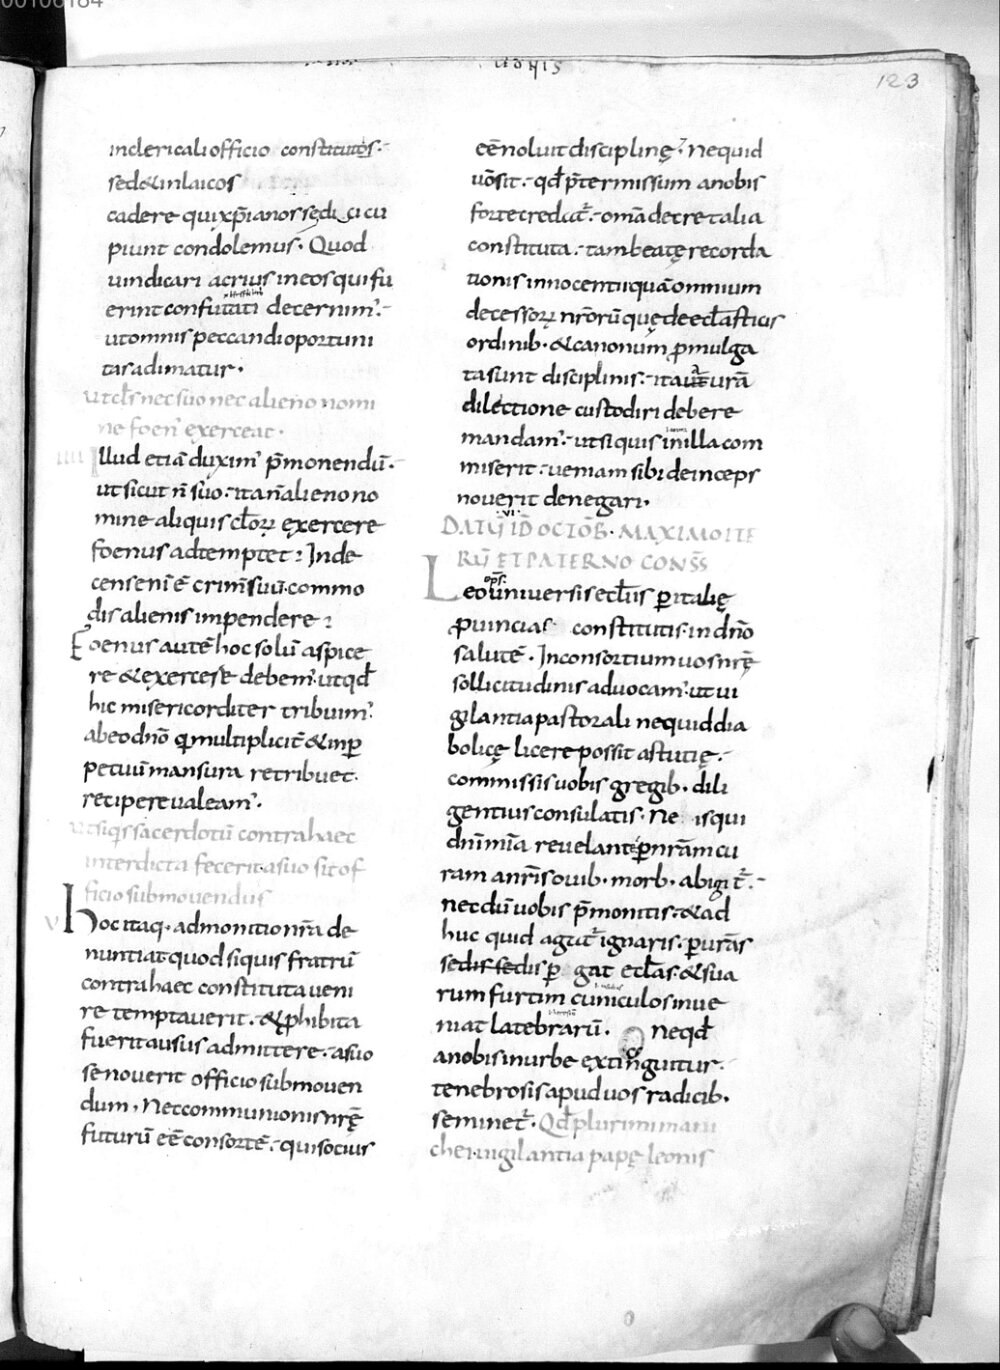 00106184
123
inclericali officio constitutos·
sed&inlaicos
cadere quixp̄ianorsędi cicu
piunt condolemus· Quod
uindicari acrius ineosquifu
erintconfutati decernim᾽·
utomnis peccandioportuni
tasadimatur·
utcl̄s nec suo nec alieno nomi
ne foen᾽ exerceat·
IIII Illud etiā duxim᾽ p̄monendū·
ut sicut n̄ suo· ita n̄ alieno no
mine aliquis cl̄oꝝ exercere
foenus adtemptet: Inde
censeni ē crim̄ suū commo
dis alienis impendere:
Foenus autē hoc solū aspice
re &exercere debem᾽ utqd̄
hic misericorditer tribuim᾽
abeodn̄o q̄ multipliciť &inꝑ
petuū mansura retribuet·
recipere ualeam᾽·
utsiq̄s sacerdotū contra haec
interdicta fecerit asuo sit of
ficio submouendus
V hoc itaq· admonitio nr̄a de
nuntiat quod siquis fratrū
contra haec constituta ueni
re temptauerit· &ꝓhibita
fuerit ausus admittere· asuo
se nouerit officio submouen
dum, Nec communionis nr̄ę
futurū eē consortē· qui socius
eē noluit disciplinę· Nequid
uōsit· qd̄ p̄termissum anobis
forte credat᾽· om̄a decretalia
constituta· tam beatę recorda
tionis innocentii quā omnium
decessoꝝ nr̄orū quę de ecl̄asticis
ordinib· &canonum ꝓmulga
ta sunt disciplinis· ita uurā
dilectione custodiri debere
mandam᾽· ut siquis inilla com
miserit· ueniam sibi deinceps
nouerit denegari·
DAT̄ VI ID̄ OCTOB̄· MAXIMO ITE
RŪ ET PATERNO CONSS̄
Leo ep̄s uniuersis ecl̄iis ꝑ italię
ꝓuincias constitutis· in dn̄o
salutē· Inconsortium uos nr̄ę
sollicitudinis aduocam᾽· ut ui
gilantia pastorali nequid dia
bolicę licere possit astutię·
commissis uobis gregib· dili
gentius consulatis· Ne isqui
dn̄i mīa reuelante ꝑ nr̄am cu
ram anr̄is ouib· morb· abigit᾽·
necdū uobis p̄monitis· &ad
huc quid agat᾽ ignaris· ꝑ urās
sedis sedis ꝑ gat ecl̄as· &sua
rum furtim cuniculos inue
niat latebrarū· neqd̄
anobis inurbe extinguitur·
tenebrosis apud uos radicib·
seminet᾽· Qd̄ plurimi mani
chei uigilantia papę leonis